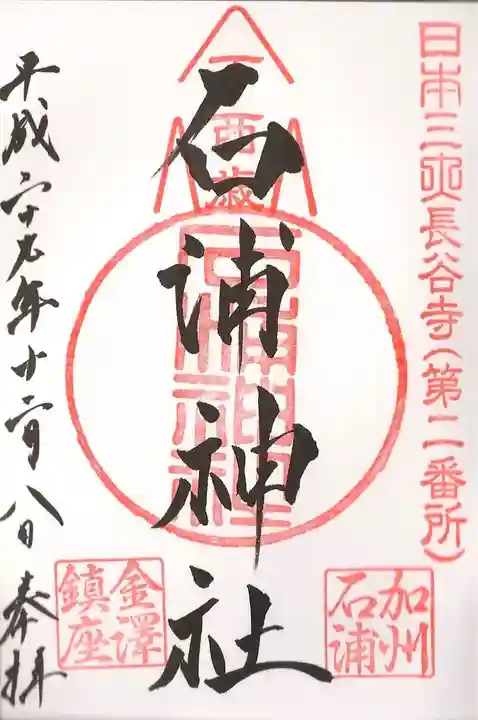 日本三大長谷寺(第二番所)
石浦神社
酉歳
石浦神社
加州
石浦
金澤
鎮座
平成二十九年十二月八日奉拝